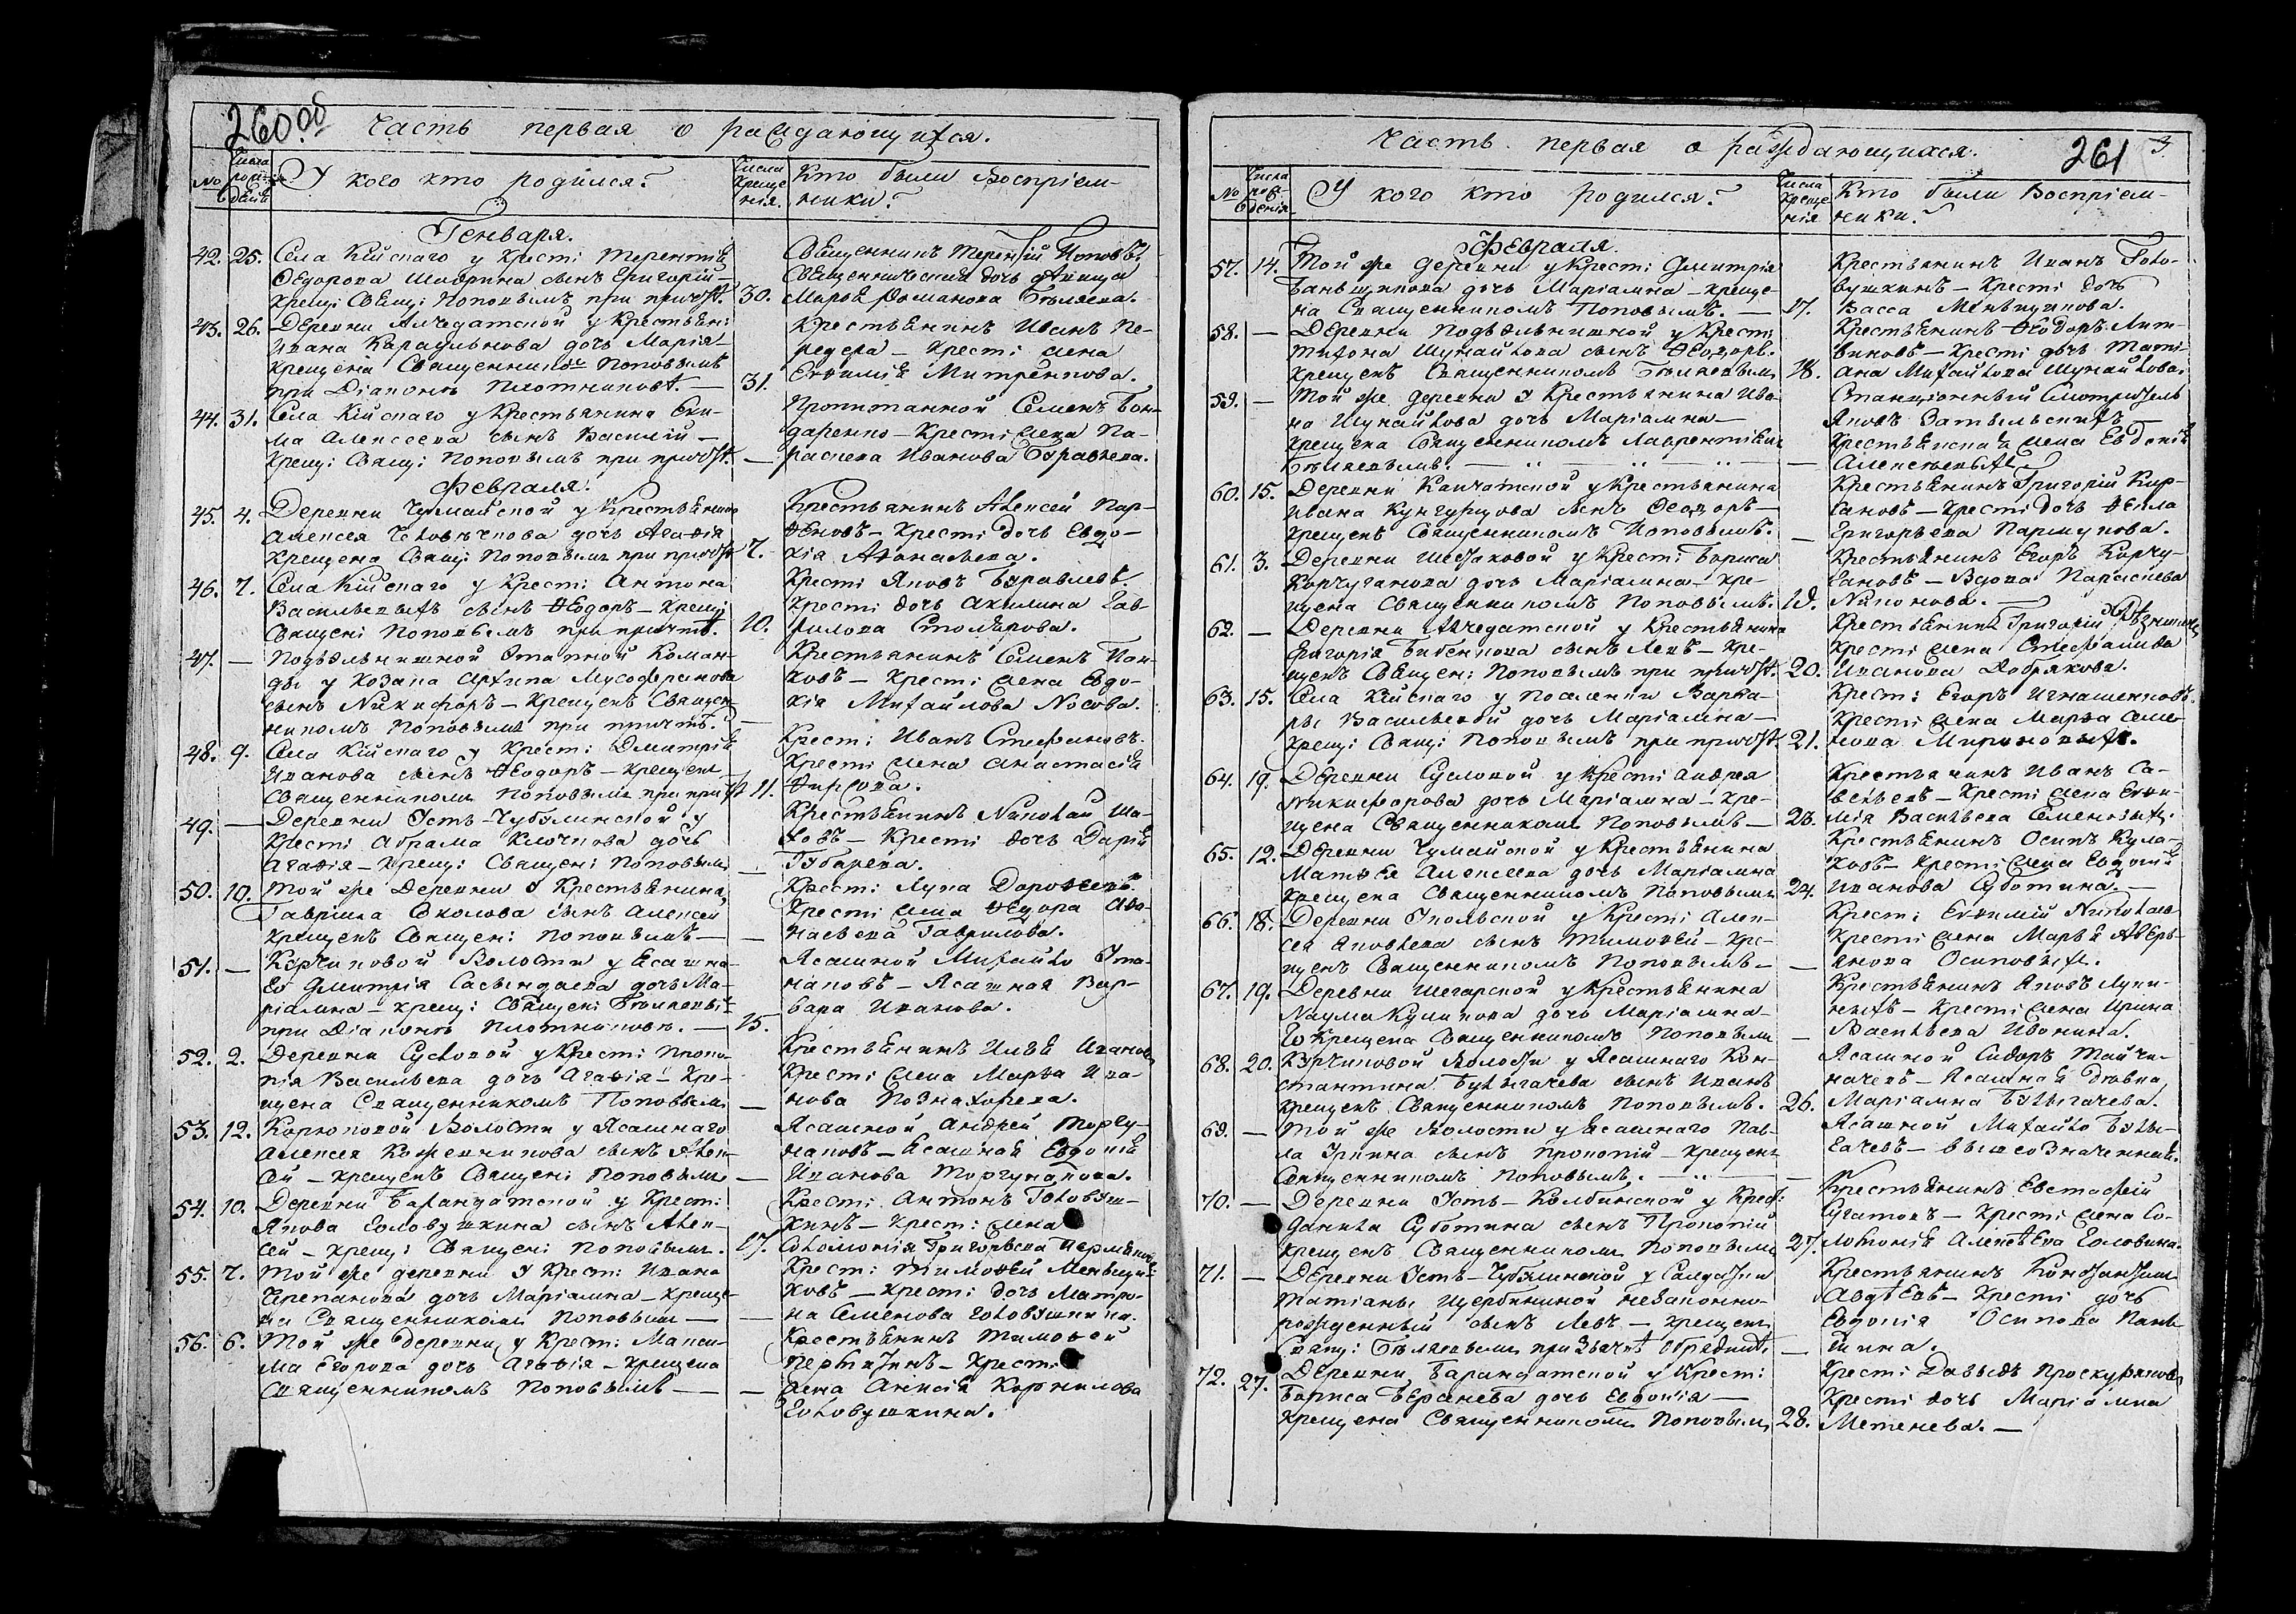 260 об
Часть первая о раждающихся.
No
Числа рож-дения
У кого кто родился?
Числа Креще-нія.
Кто были Воспріем-
ники?
Генваря.
42. 25. Села Кійскаго у Крест: Терентія
Федорова Шадрина сынъ Григорій —
Крещ: Свящ: Поповымъ при причт. 30.
Священникъ Терентій Поповъ,
Священническая дочь
Марья Романова Бѣляева.
43. 26. Деревни Алчедатской у Крестьян:
Ивана Караульнова дочь Марія —
крещена Священником Поповымъ
при Діаконѣ Плотниковѣ. — 31.
Крестьянинъ Иванъ Пе-
редера — Крест: жена
Евфимія Митренкова.
44. 31. Села Кійскаго у Крестьянина Еки-
ма Алексеева сынъ Василій —
Крещ: Свящ: Поповымъ при причт. —
Пропитанной Семенъ Бон-
даренко — Крест: жена Па-
раскева Иванова Журавлева.
Февраля.
45. 4. Деревни Чумайской у Крестьянина
Алексея Человѣчкова дочь Агафія
Крещена Свящ: Поповымъ при причт 7.
Крестьянинъ Алексей Пар-
феновъ — Крест: дочь Евдо-
кія Афанасьева.
46. 7. Села Кійскаго у Крест: Антона
Васильевыхъ сынъ Феодоръ — Крещ:
Священ: Поповымъ при причтѣ. 10.
Крест: Яковъ Журавлевъ.
Крест: дочь Акилина Гав-
рилова Столярова.
47. — Подъельнишной Этапной Коман-
ды у Козака Архипа Мусоферанова
сынъ Никифоръ — Крещенъ Священ-
никомъ Поповымъ при причтѣ. —
Крестьянинъ Семенъ Пан-
ковъ — Крест: жена Евдо-
кія Михайлова Носова.
48. 9. Села Кійскаго у Крест: Дмитрія
Иванова сынъ Феодоръ — Крещенъ
Священникомъ Поповымъ при прич 11.
Крест: Иванъ Стефановъ.
Крест: жена Анастасія
Фирсова.
49. — Деревни Усть-Чубулинской у
Крест: Абрама Клочкова дочь
Агафія — Крещ: Священ: Поповымъ —
Крестьянинъ Николай Ша-
ховъ — Крест: дочь Дарія
Губарева.
50. 10. Той же Деревни у Крестьянина
Гавріила Соколова сынъ Алексей
крещенъ Священ: Поповымъ — —
Крест: Лука Дорофеевъ.
Крест: жена Федора Афо-
насьева Гаврилова.
51. — Курчиковой Волости у Ясашна-
го Дмитрія Сасындаева дочь Ма-
ріамна — Крещ: Священ: Бѣляевы-
при Діаконѣ Плотниковѣ. — 15.
Ясашной Михайло Ута-
наковъ — Ясашная Вар-
вара Иванова.
52. 2. Деревни Сусловой у Крест: Проко-
пія Васильева дочь Агафія — Кре-
щена Священникомъ Поповымъ —
Крестьянинъ Илья Ивановъ
Крест: жена Марфа Ива-
нова Познахорева.
53. 12. Корюковой Волости у Ясашнаго
Алексея Кожевникова сынъ Алек-
сей — крещенъ Священ: Поповымъ —
Ясашной Андрей Торгу-
наковъ — Ясашная Евдокія
Иванова Торгунакова.
54. 10. Деревни Барандатской у Крест:
Якова Головушкина сынъ Алек-
сей — Крещ: Священ: Поповымъ. 17.
Крест: Антонъ Головуш-
кинъ — Крест: жена
Соломонія Григорьева Пермякова
55. 7. Той же деревни у Крест: Ивана
Черепанова дочь Маріамна — Креще-
на Священникомъ Поповымъ — —
Крест: Тимофей Меньщи-
ковъ — Крест: дочь Матро-
на Семенова Головушкина.
56. 6. Той же деревни у Крест: Макси-
ма Егорова дочь Агафія — Крещена
Священникомъ Поповымъ — —
Крестьянинъ Тимофей
— Крест:
жена Анисія Корнилова
Головушкина.
Часть первая о раждающихся.
261
No
Числа рож-денія
У кого кто родился?
Числа Креще-нія
Кто были Воспріем-
ники?
Февраля.
57. 14. Той же деревни у Крест: Дмитрія
Баньщикова дочь Маріамна — Креще-
на Священникомъ Поповымъ. — 17.
Крестьянинъ Иванъ Голо-
вушкинъ — Крест: дочь
Васса Меньщикова.
58. — Деревни Подъельнишной у Крест:
Тихона Шумайлова сынъ Феодоръ.
Крещенъ Священникомъ Бѣляевымъ 18.
Крестьянинъ Феодоръ Лит-
виновъ — Крест: дочь Тати-
ана Михайлова Шумайлова.
59. — Той же деревни у Крестьянина Ива-
на Шумайлова дочь Маріамна —
Крещена Священникомъ Лаврентіемъ
Бѣляевымъ. —
Станціонный Смотритель
Яковъ —
Крестьянская жена Евдокія
Алексѣевыхъ
60. 15. Деревни Камчатской у Крестьянина
Ивана Кунгурцова сынъ Феодоръ —
Крещенъ Священникомъ Поповымъ. —
Крестьянинъ Григорій Кир-
сановъ — Крест: дочь Фекла
Григорьева Пармухова.
61. 3. Деревни Шестаковой у Крест: Бориса
Корчуганова дочь Маріамна — Кре-
щена Священникомъ Поповымъ. 19.
Крестьянинъ Егоръ Корчу-
гановъ — Вдова Параскева
Никонова. —
62. — Деревни Алчедатской у Крестьянина
Григорія Бабенкова сынъ Левъ — Кре-
щенъ Священ: Поповымъ при причт. 20.
Крестьянинъ Григорій
Крест: жена Стефанида
Иванова Добрякова.
63. 15. Села Кійскаго у Поселенки Варва-
ры Васильевой дочь Маріамна —
Крещ: Свящ: Поповымъ при причт. 21.
Крест: Егоръ Игнашенковъ.
Крест: жена Марфа Семе-
нова Мироновыхъ.
64. 19. Деревни Сусловой у Крест: Андрея
Никифорова дочь Маріамна — Кре-
щена Священникомъ Поповымъ — 23.
Крестьянинъ Иванъ Са-
вельевъ — Крест: жена Евфи-
мія Васильева Семеновыхъ.
65. 12. Деревни Чумайской у Крестьянина
Матфея Алексеева дочь Маріамна
Крещена Священникомъ Поповымъ 24.
Крестьянинъ Осипъ Кула-
ковъ — Крест: жена Евдокія
Иванова Суботина. —
66. 18. Деревни Укольской у Крест: Алек-
сея Яковлева сынъ Тимофей — Кре-
щенъ Священникомъ Поповымъ — —
Крест: Евфимій Николаевъ
Крест: жена Марья Аверь-
янова Осиповыхъ.
67. 19. Деревни Шегарской у Крестьянина
Наума Куликова дочь Маріамна —
Крещена Священникомъ Поповымъ —
Крестьянинъ Яковъ Луки-
ныхъ — Крест: жена Ирина
Васильева Ивонина.
68. 20. Курчиковой Волости у Ясашнаго Кон-
стантина Булыгачева сынъ Иванъ
Крещенъ Священникомъ Поповымъ. 26.
Ясашной Сидоръ Тайчи-
начевъ — Ясашная дѣвка
Маріамна Булыгачева.
69. — Той же Волости у Ясашнаго Пав-
ла сынъ Прокопій — Крещенъ
Священникомъ Поповымъ. — —
Ясашной Михайло Булы-
гачевъ — вышеозначенный.
70. — Деревни Усть-Колбинской у Крест:
Данила Суботина сынъ Прокопій
Крещенъ Священникомъ Поповымъ 27.
Крестьянинъ Евстафей
— Крест: жена Со-
ломонія Алексѣева Еловина.
71. — Деревни Усть-Чубулинской у Салдатки
Татіаны Щербининой незаконно-
рожденный сынъ Левъ — Крещенъ
Свящ: Бѣляевымъ при —
Крестьянинъ Константинъ
Авдѣевъ — Крест: дочь
Евдокія Осипова Пань-
шина.
72. 27. Деревни Барандатской у Крест:
Бориса дочь Евдокія —
Крещена Священникомъ Поповымъ 28.
Крест: Давыдъ Проскуряковъ
Крест: дочь Маріамна
Метенева. —